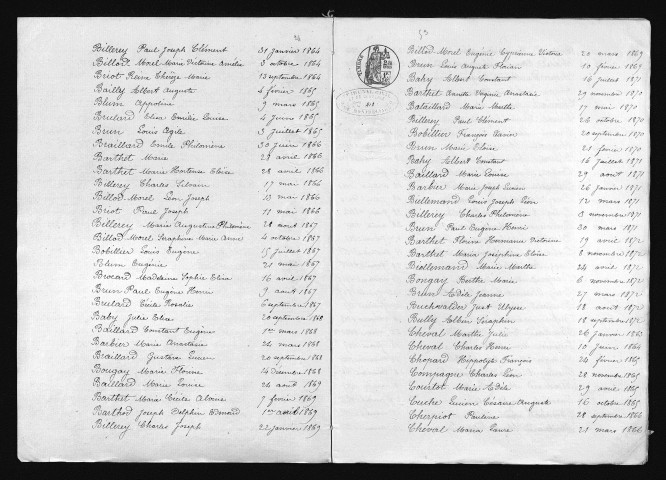 Billerey Paul Joseph Clément 31 janvier 1864
Billod Morel Marie Victoire Amélie 3 octobre 1864
Briot Reine Thérèze Marie 13 septembre 1864
Bailly Albert Auguste 4 février 1865
Blum Appoline 9 mars 1865
Brulard Elisa Emilie Louise 4 juin 1865
Brun Louis 3 juillet 1865
Braillard Emile Philomène 30 juin 1866
Barthet Marie 29 avril 1866
Barthet Marie Hortense Elisa 28 avril 1866
Billerey Charles Silvain 17 mai 1866
Billod Morel Léon Joseph 10 mai 1866
Briot Paul Joseph 11 mai 1866
Billerey Marie Augustine Philomène 28 août 1867
Billod Morel Séraphine Marie Anne 4 octobre 1867
Bobillier Louis Eugène 15 juillet 1867
Blum Eugénie 21 mai 1867
Brocard Madeleine Sophie Elisa 16 avril 1867
Brun Paul Eugène Henri 9 août 1867
Brulard Cécile Rosalie 6 septembre 1867
Baby Julie Elisa 20 septembre 1868
Baillard Constant Eugène 1er mars 1868
Barbier Marie Anastasie 24 mars 1868
Braillard Justine 20 septembre 1868
Bougay Marie 24 décembre 1868
Baillard Marie Louise 26 août 1869
Barthet Marie Cécile 7 février 1869
Barthod Joseph Delphin 1er août 1869
Billerey Charles Joseph 22 janvier 1869
53
Billod Morel Eugénie Cyprienne Victoria 20 mars 1869
Brun Louis August Florian 10 février 1869
Bahy Albert Constant 16 juillet 1871
Barthet Virginie Anastasie 29 novembre 1870
Bataillard Marie Marthe 17 mai 1870
Billerey Paul Clément 26 octobre 1870
Bobillier François Xavier 20 septembre 1870
Brun Marie 21 février 1870
Bahy Albert Constant 16 juillet 1871
Baillard Marie Louise 29 août 1871
Barbier Marie Joseph Lucien 26 janvier 1871
Bullemand Louis Joseph Léon 12 mars 1871
Billerey Charles Philomène 8 novembre 1871
Brun Paul Eugène Henri 30 mars 1871
Barthet Florine Hermance Victorine 19 avril 1872
Barthet Marie Joséphine Elise 8 novembre 1872
Marie Marthe 24 avril 1872
Bongay Berthe Marie 6 novembre 1872
Brun Adèle Jeanne 27 mars 1872
Buchwalder Just Ulysse 18 août 1872
Bully Albin Séraphin 18 septembre 1872
Cheval Marthe Julie 26 janvier 1863
Cheval Charles Henri 10 juin 1864
Chopard Hippolyte François 24 février 1865
Compagne Charles Léon 28 novembre 1865
Courlot Marie Adèle 29 avril 1865
Cuche Lucien Césaire Auguste 16 octobre 1865
Cherpiot Pauline 28 septembre 1866
Cheval Maria Laure 21 mars 1866